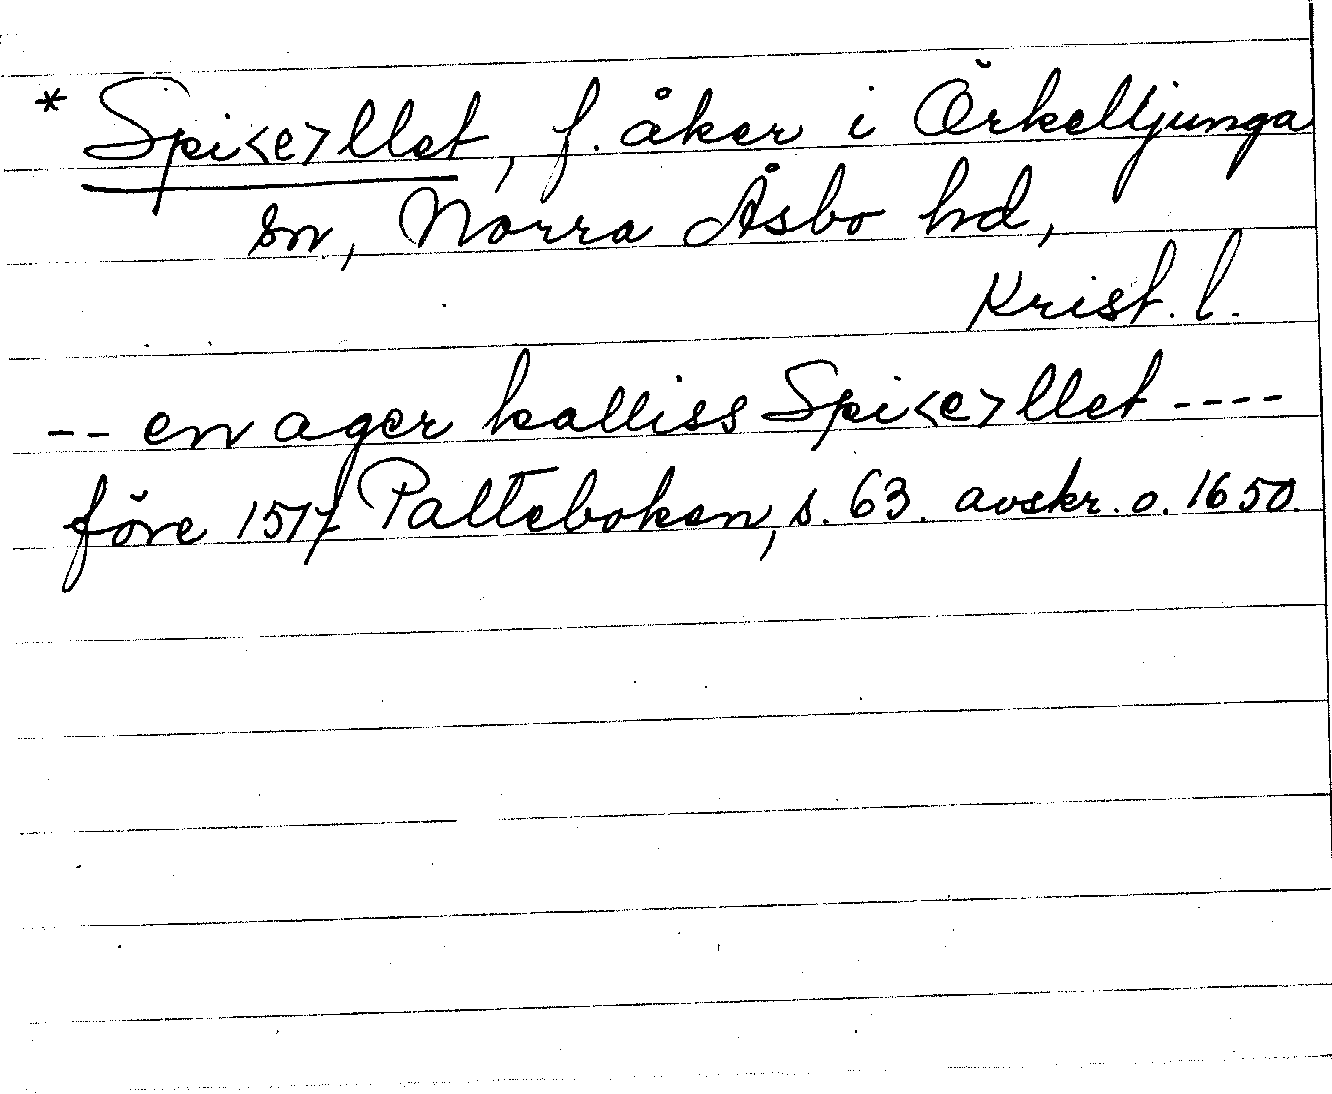 * Spi<e>llet, f. åker i Örkelljunga
sn, Norra Åsbo hd,
Krist. l.
-- en ager kalliss Spi<e>llet ----
före 1517 Palteboken, s. 63. avskr. o. 1650.